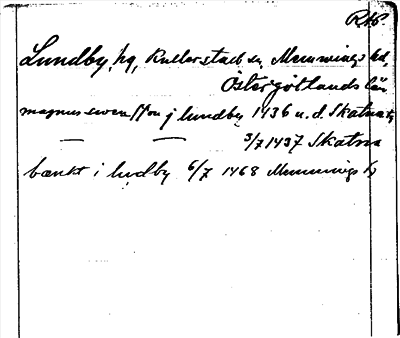 RAP.
Lundby, hg, Kullerstad sn, Memmings hd,
Östergötlands län
magnus swensson j lundby 1436 u. d. Skatna
— — 3/7 1437 Skatna
bænkt i lundby 6/7 1468 Memmings h